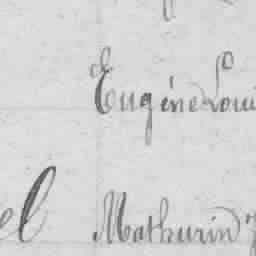 Eugène Loui
el Mathurin